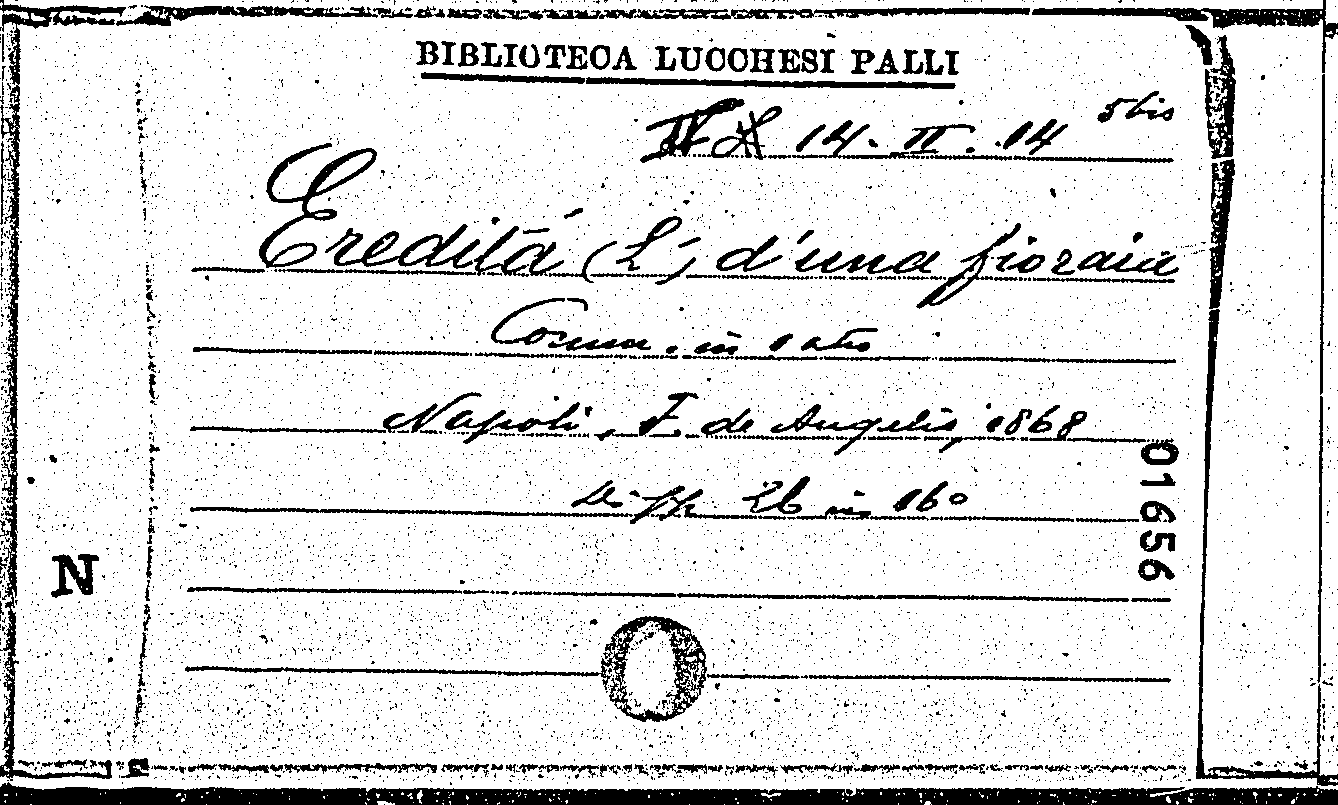 BIBLIOTECA LUCCHESI PALLI
14. II. 14 5 bis
Eredità (L') d'una fioraia
Comm. in 1 atto
Napoli, F. de Angelis, 1868
Di pp. 26 in 16º
01656
N